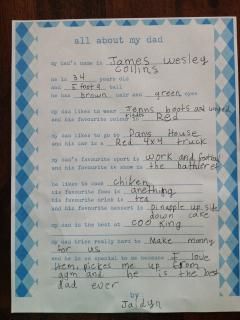 all about my dad
my dad's name is James wesley
collins
he is 34 years old
and 5 foot 9 tall
he has brown hair and green eyes
my dad likes to wear Jenns boots and
and his favourite colour is Red
my dad likes to go to Dans House
and his car is a Red 4x4 truck
my dad's favourite sport is work and footbal
and his favourite tv show is the batheret
he likes to cook chiken
his favourite food is anething
his favourite drink is tea
and his favourite dessert is pineapple up side
down cake
my dad is the best at cooking
my dad tries really hard to Make monny
for us
and he is so special to me because I love
Hem, pickes me up from
gym and he is the best
dad ever
by
Jaidyn